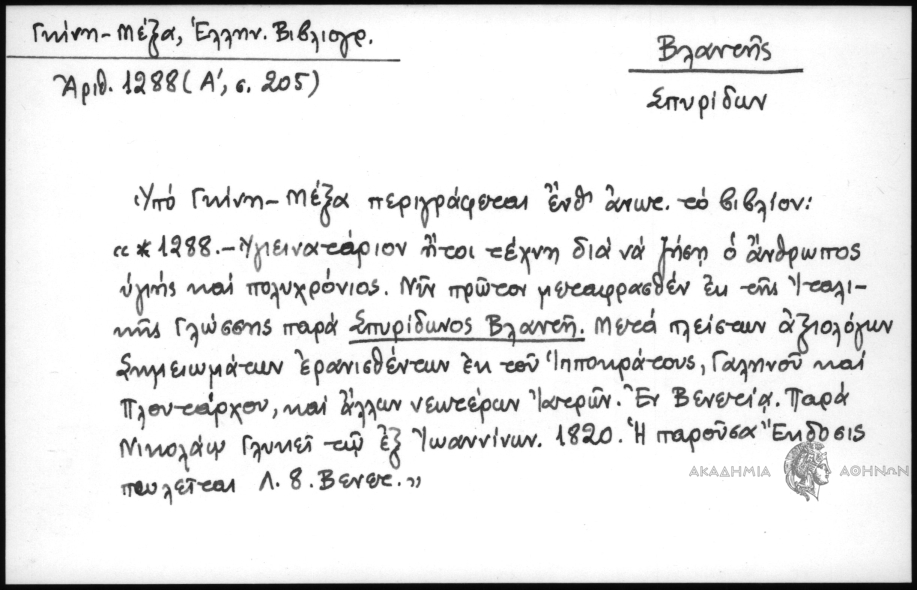 Γκίνη-Μέξα, Ἑλλην. Βιβλιογρ.
Ἀριθ. 1288 (Α', σ. 205)
Βλαντῆς
Σπυρίδων
Ὑπό Γκίνη-Μέξα περιγράφεται ἔνθ' ἀνωτ. τό βιβλίον:
«*1288.- Ὑγιεινατάριον ἤτοι τέχνη διά νά ζήσῃ ὁ ἄνθρωπος
ὑγιής καί πολυχρόνιος. Νῦν πρῶτον μεταφρασθέν ἐκ τῆς Ἰταλι-
κῆς Γλώσσης παρά Σπυρίδωνος Βλαντῆ. Μετά πλείστων ἀξιολόγων
Σημειωμάτων ἐρανισθέντων ἐκ τοῦ Ἱπποκράτους, Γαληνοῦ καί
Πλουτάρχου, καί ἄλλων νεωτέρων Ἰατρῶν. Ἐν Βενετίᾳ. Παρά
Νικολάῳ Γλυκεῖ τῷ ἐξ Ἰωαννίνων. 1820. Ἡ παροῦσα Ἔκδοσις
πωλεῖται Λ. 8. Βενετ.»
ΑΚΑΔΗΜΙΑ ΑΘΗΝΩΝ